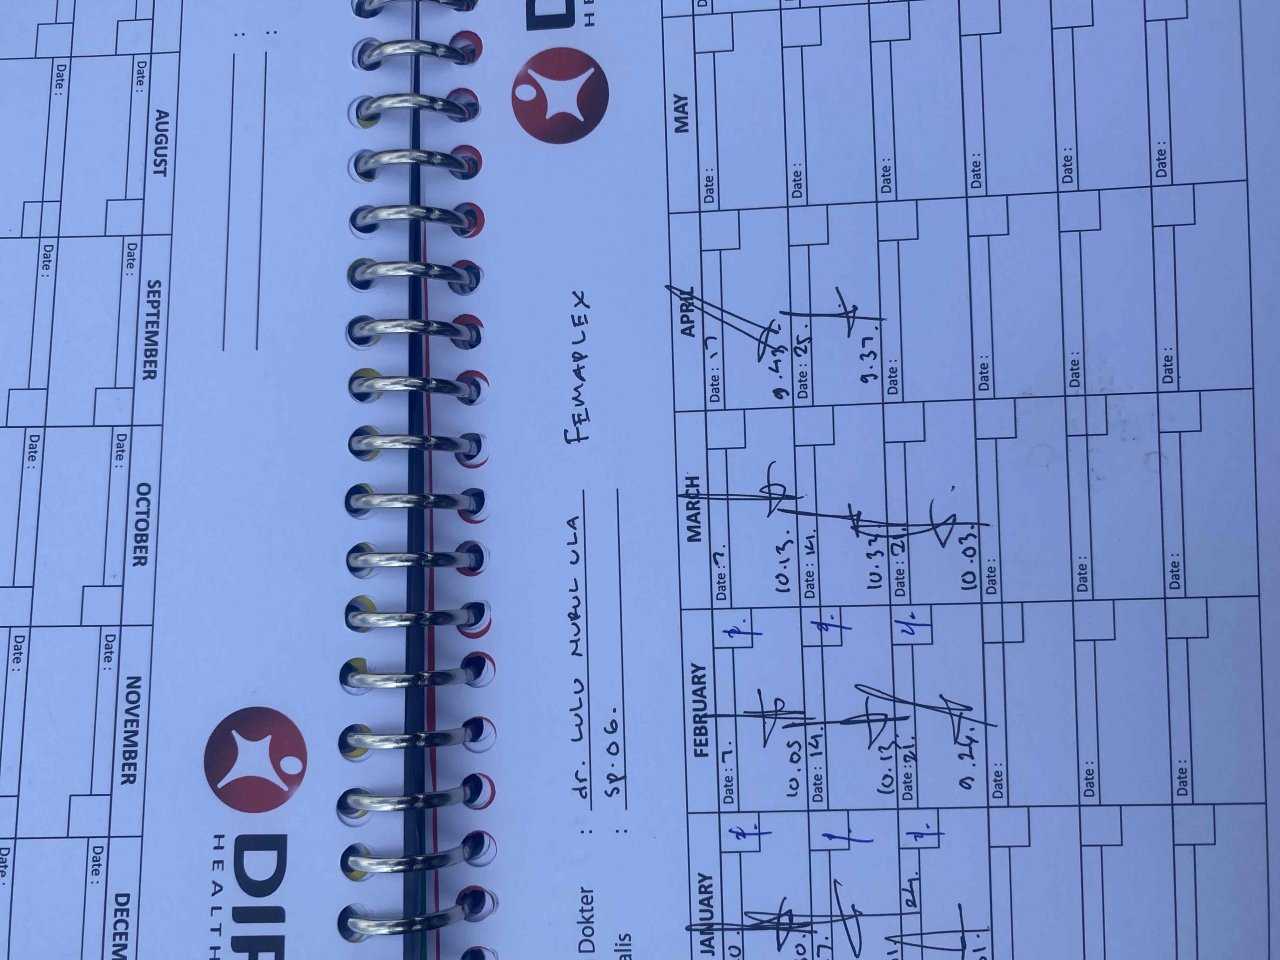 Dokter : dr. LULU NURUL ULA FEMAPLEX
alis : Sp.OG.
JANUARY FEBRUARY MARCH APRIL MAY
Date : 7. Date : 7. Date : 17 Date :
10.05 10.13. 9.43
Date : 14. Date : 14. Date : 25. Date :
10.13 10.32 9.37.
24. Date : 21. Date : 21. Date : Date :
9.24. 10.03.
Date : Date : Date : Date :
Date : Date : Date : Date :
Date : Date : Date : Date :
HEALTH
: 
:
AUGUST SEPTEMBER OCTOBER NOVEMBER DECEM
Date : Date : Date : Date : Date :
Date : Date : Date : Date : Date :